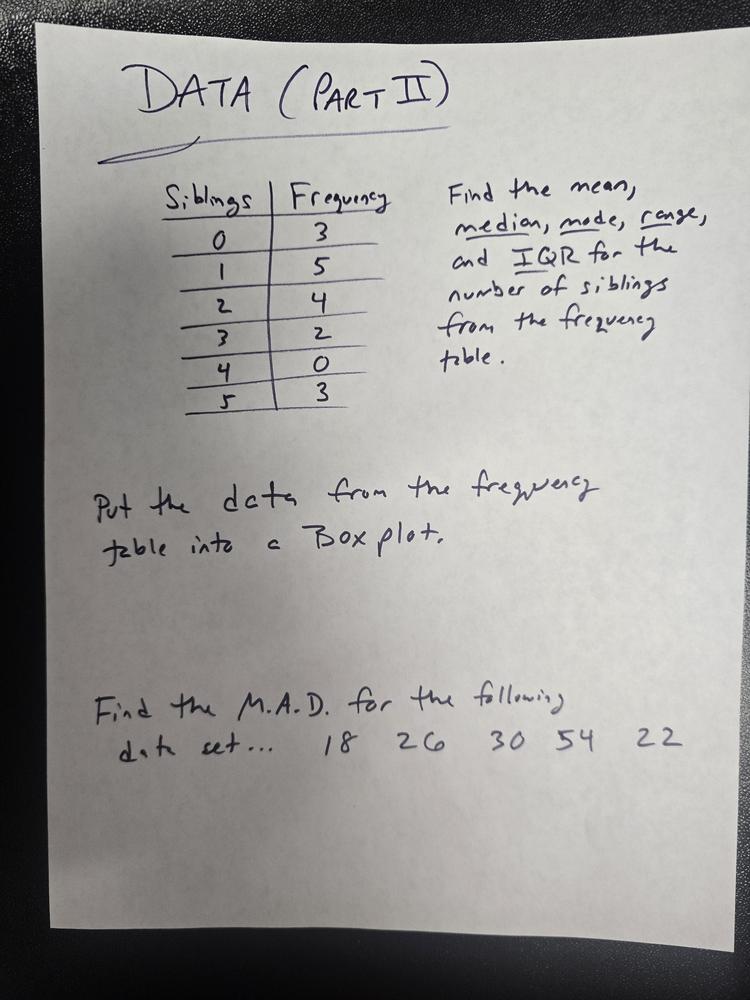 DATA (PART II)
Siblings Frequency
0 3
1 5
2 4
3 2
4 0
5 3
Find the mean,
median, mode, range,
and IQR for the
number of siblings
from the frequency
table.
Put the data from the frequency
table into a Box plot.
Find the M.A.D. for the following
data set... 18 26 30 54 22